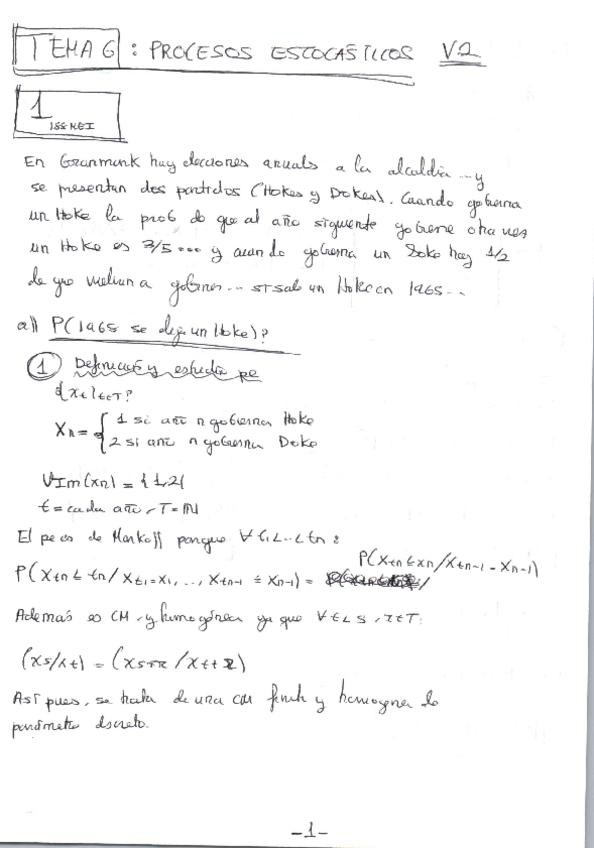 TEMA 6 : PROCESOS ESTOCÁSTICOS V2
1
En Granmunk hay elecciones anuals a la alcaldia ... y
se presentan dos partidos (Hokes y Dokes). Cuando gobierna
un Hoke la prob de que al año siguiente gobierne otra vez
un Hoke es 3/5 ... y cuando gobierna un Doke hay 1/2
de que vuelvan a gobernar ... si sale un Hoke en 1965 ..
a)) P(1965 se elija un Hoke)?
1 Definición y estudio pe
{xt}t∈T?
Xn = { 1 si año n gobierna Hoke
2 si año n gobierna Doke
VIm(xn) = {1,2}
t = cada año, T = ℕ
El pe es de Markoff porque ∀ t1<..<tn :
P(Xtn ≤ tn / Xt1=x1, .., Xtn-1 = Xn-1) = P(Xtn ≤ xn / Xtn-1 = Xn-1)
Además es CM y homogénea ya que ∀ t<s, r∈T:
(Xs/Xt) = (Xs+r / Xt+r)
Así pues, se trata de una CM finita y homogenea de
parámetro discreto.
-1-